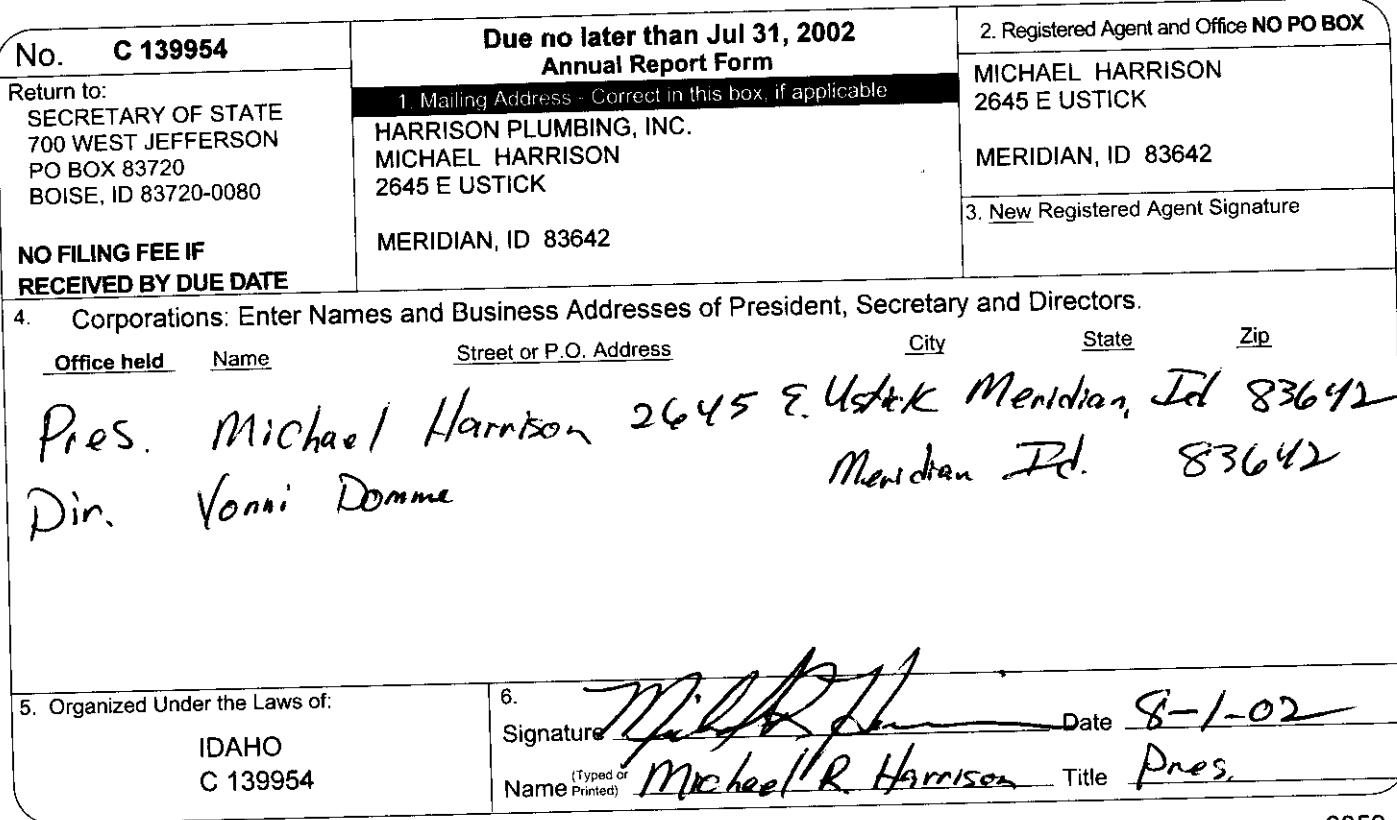 No. C 139954
Return to:
SECRETARY OF STATE
700 WEST JEFFERSON
PO BOX 83720
BOISE, ID 83720-0080
NO FILING FEE IF
RECEIVED BY DUE DATE
Due no later than Jul 31, 2002
Annual Report Form
1. Mailing Address - Correct in this box, if applicable
HARRISON PLUMBING, INC.
MICHAEL HARRISON
2645 E USTICK
MERIDIAN, ID 83642
2. Registered Agent and Office NO PO BOX
MICHAEL HARRISON
2645 E USTICK
MERIDIAN, ID 83642
3. New Registered Agent Signature
4. Corporations: Enter Names and Business Addresses of President, Secretary and Directors.
Office held Name Street or P.O. Address City State Zip
Pres. Michael Harrison 2645 E. Ustick Meridian, Id 83642
Dir. Vonni Domme Meridian Id. 83642
5. Organized Under the Laws of:
IDAHO
C 139954
6.
Signature Date 8-1-02
Name (Typed or Printed) Michael R. Harrison Title Pres.